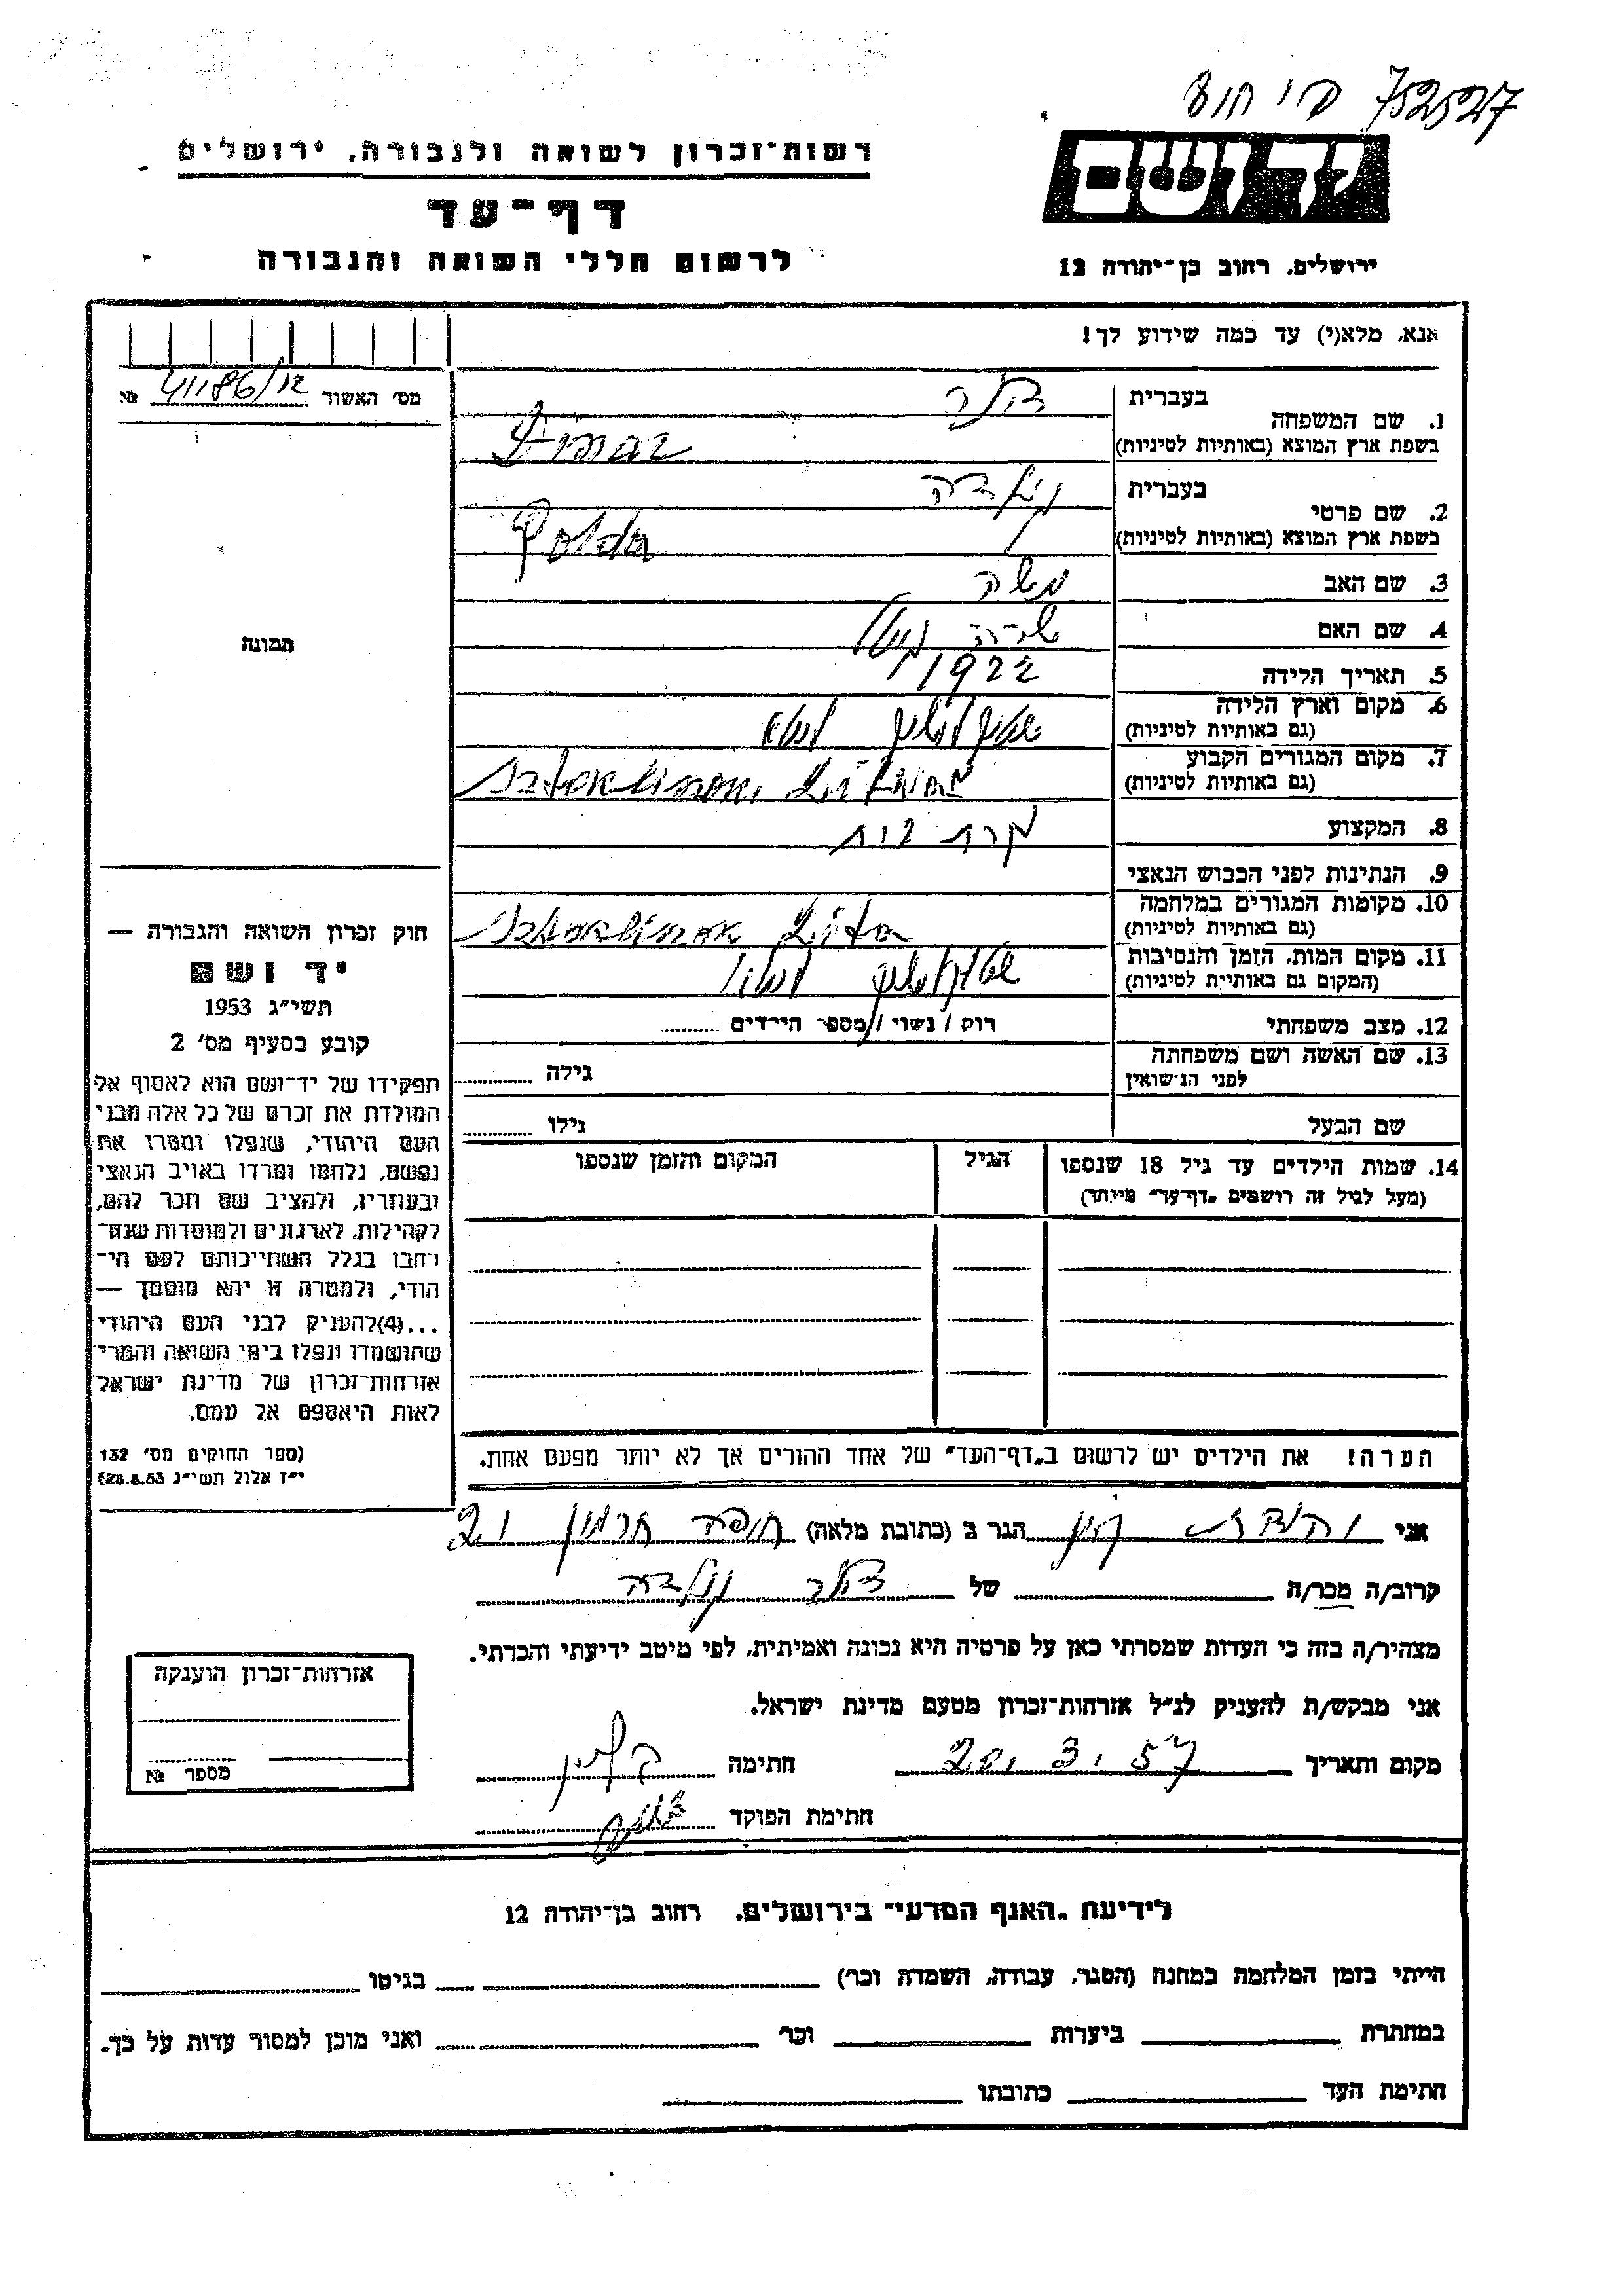 752527
יד ושם
ירושלים, רחוב בן־יהודה 12
רשות־זכרון לשואה ולגבורה, ירושלים
דף־עד
לרשום חללי השואה והגבורה
אנא, מלא(י) עד כמה שידוע לך!
מס׳ האשור 41186/12 №
תמונה
חוק זכרון השואה והגבורה —
יד ושם
תשי״ג 1953
קובע בסעיף מס׳ 2
תפקידו של יד־ושם הוא לאסוף אל
המולדת את זכרם של כל אלה מבני
העם היהודי, שנפלו ומסרו את
נפשם, נלחמו ומרדו באויב הנאצי
ובעוזריו, ולהציב שם וזכר להם,
לקהילות, לארגונים ולמוסדות שנח־
רבו בגלל השתייכותם לעם הי־
הודי, ולמטרה זו יהא מוסמך —
...(4) להעניק לבני העם היהודי
שהושמדו ונפלו בימי השואה והמרי
אזרחות־זכרון של מדינת ישראל
לאות היאספם אל עמם.
(ספר החוקים מס׳ 132
י״ז אלול תשי״ג 28.8.53)
1. שם המשפחה בעברית
בשפת ארץ המוצא (באותיות לטיניות)
2. שם פרטי בעברית
בשפת ארץ המוצא (באותיות לטיניות) Polda
3. שם האב משה
4. שם האם שרה
5. תאריך הלידה 1922
6. מקום וארץ הלידה
(גם באותיות לטיניות)
7. מקום המגורים הקבוע
(גם באותיות לטיניות)
8. המקצוע עקרת בית
9. הנתינות לפני הכבוש הנאצי
10. מקומות המגורים במלחמה
(גם באותיות לטיניות) Lita
11. מקום המות, הזמן והנסיבות
(המקום גם באותיות לטיניות)
12. מצב משפחתי רוק / נשוי / מספר הילדים
13. שם האשה ושם משפחתה
לפני הנישואין גילה
שם הבעל גילו
14. שמות הילדים עד גיל 18 שנספו הגיל המקום והזמן שנספו
(מעל לגיל זה רושמים „דף־עד״ מיוחד)
הערה! את הילדים יש לרשום ב„דף־העד״ של אחד ההורים אך לא יותר מפעם אחת.
אני יהודית הגר ב (כתובת מלאה) חיפה חרמון 21
קרוב/ה מכר/ה של
מצהיר/ה בזה כי העדות שמסרתי כאן על פרטיה היא נכונה ואמיתית, לפי מיטב ידיעתי והכרתי.
אני מבקש/ת להעניק לנ״ל אזרחות־זכרון מטעם מדינת ישראל.
מקום ותאריך 20.3.57 חתימה
חתימת הפוקד
אזרחות־זכרון הוענקה
מספר №
לידיעת „האגף המדעי״ בירושלים, רחוב בן־יהודה 12
הייתי בזמן המלחמה במחנה (הסגר, עבודה, השמדה וכו׳) בגיטו
במחתרת ביערות וכו׳ ואני מוכן למסור עדות על כך.
חתימת העד כתובתו